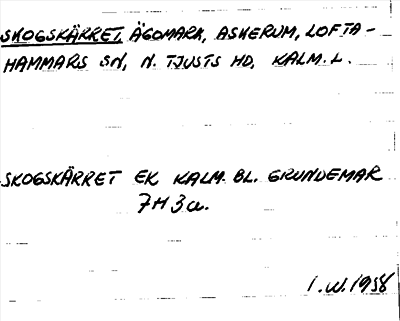 SKOGSKÄRRET, ÄGOMARK, ASKERUM, LOFTA-
HAMMARS SN, N. TJUSTS HD, KALM. L.
SKOGSKÄRRET EK KALM. BL. GRUNDEMAR
7H 3a.
I.W. 1958